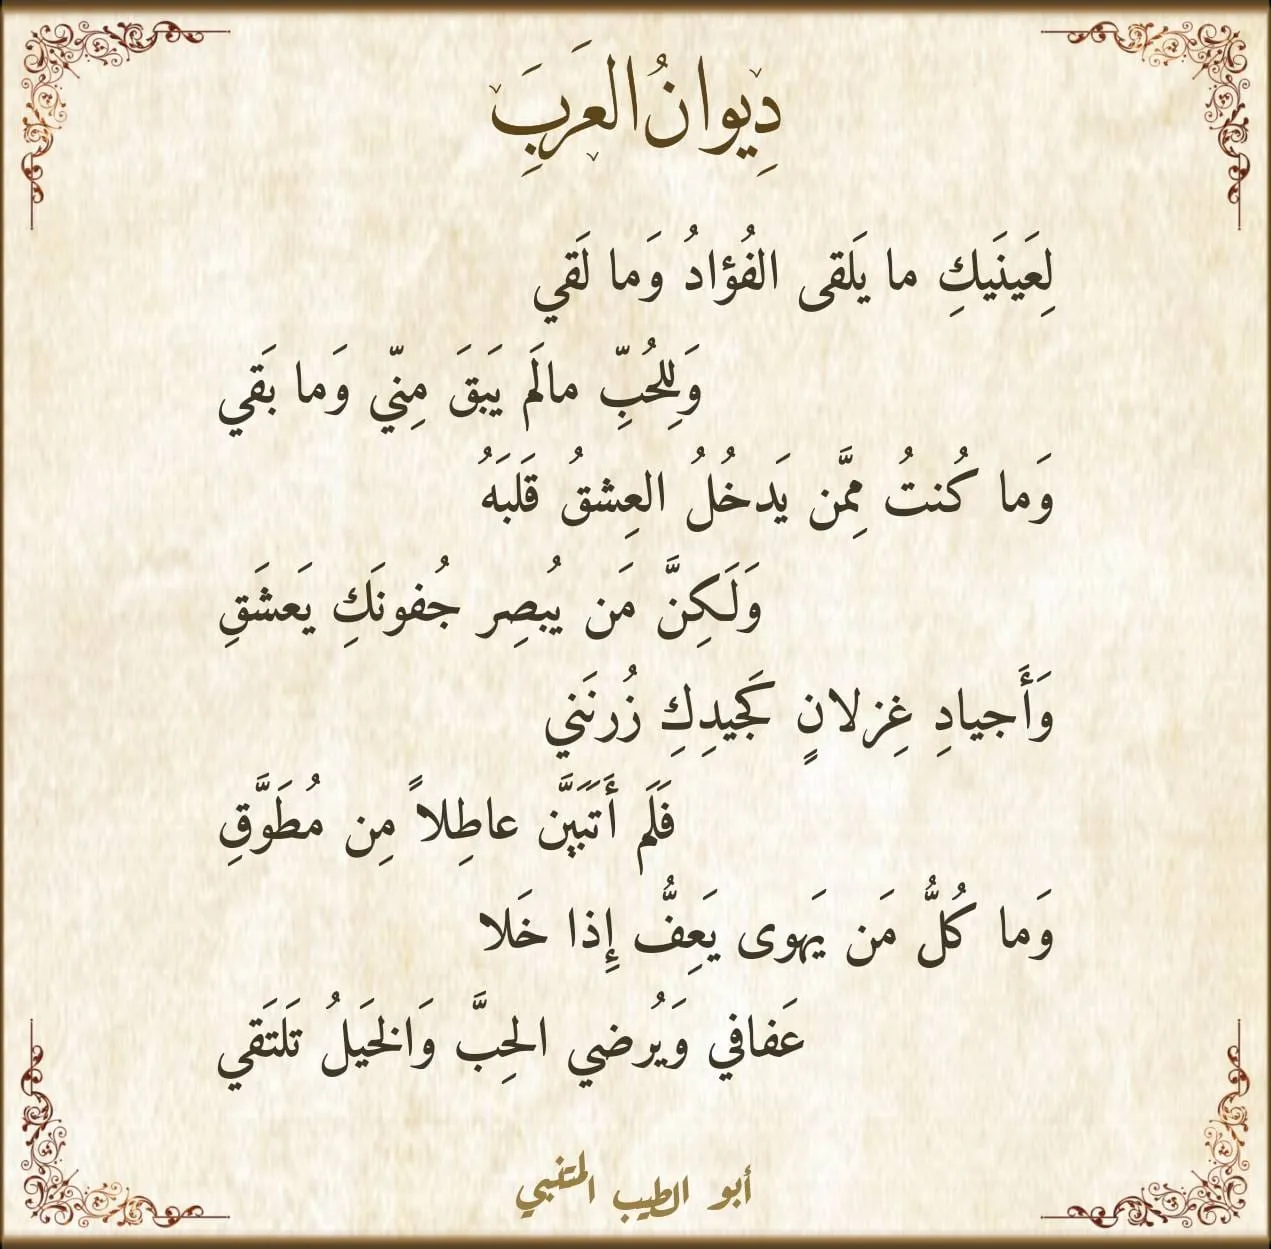 دِيوانُ العَرَبِ
لِعَينَيكِ ما يَلقى الفُؤادُ وَما لَقي
وَلِلحُبِّ مالَم يَبقَ مِنّي وَما بَقي
وَما كُنتُ مِمَّن يَدخُلُ العِشقُ قَلبَهُ
وَلَكِنَّ مَن يُبصِر جُفونَكِ يَعشَقِ
وَأَجيادِ غِزلانٍ كَجيدِكِ زُرنَني
فَلَم أَتَبَيَّن عاطِلاً مِن مُطَوَّقِ
وَما كُلُّ مَن يَهوى يَعِفُّ إِذا خَلا
عَفافي وَيُرضي الحِبَّ وَالخَيلُ تَلتَقي
أبو الطيب المتنبي